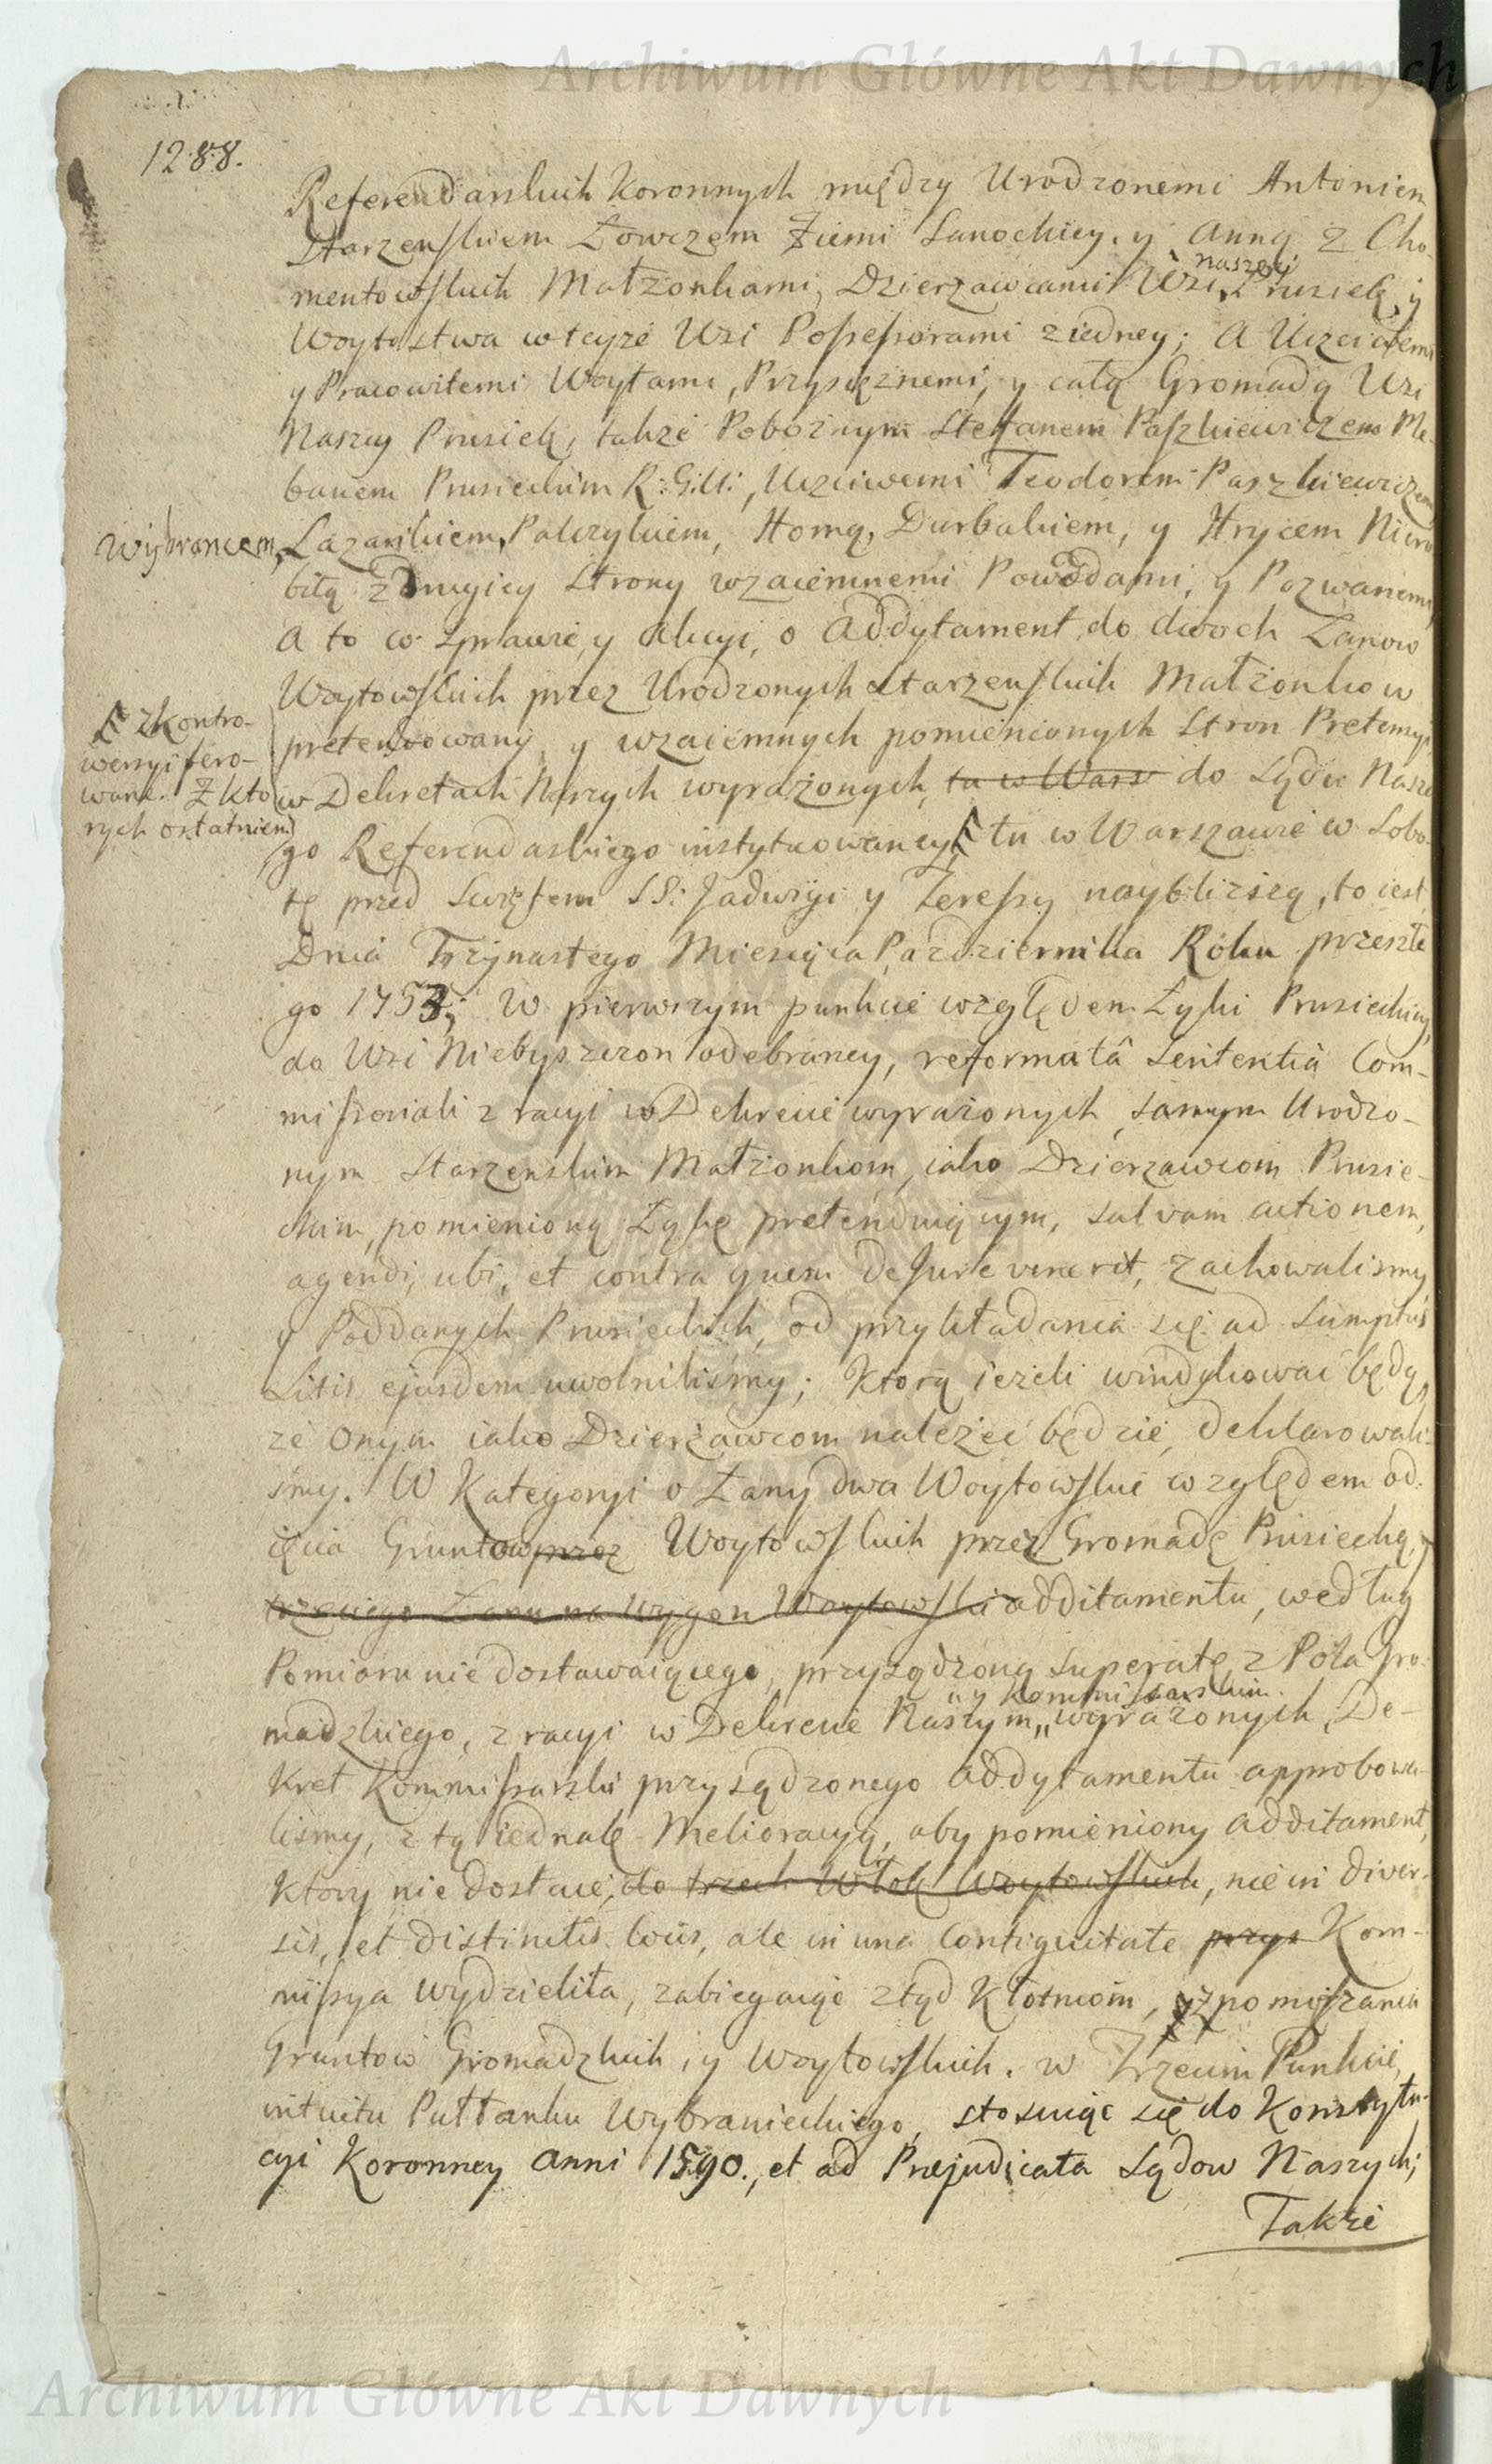 Archiwum Główne Akt Dawnych
1288.
Referendarskich Koronnych między Urodzonemi Antonim
Starzenskiem Łowczem Ziemi Sanockiey, y Anną z Cho-
naszey
mentowskich Małżonkami, Dzierzawcami Wsi Prusiek, y
Woytostwa wteyże Wsi Possessorami ziedney; A Uczciwemi
y Pracowitemi Woytami, Przysiężnemi, y całą Gromadą Wsi
Naszey Prusiek, także Pobożnym Stefanem Paszkiewiczem Ple-
banem Prusieckim R: G: U:, Uczciwemi Teodorem Paszkiewiczem
Wybrancem, Łazarzkiem, Palczykiem, Homą, Durbakiem, y Hrycem Niero
bitą z Drugiey Strony wzaiemnemi Powodami, y Pozwanemi,
A to w Sprawie, y Akcyi, o Addytament do dwoch Łanow
Woytowskich przez Urodzonych Starzenskich Małżonkow
pretendowany, y wzaiemnych pomienionych Stron Pretensyi
w Dekretach Naszych wyrażonych, tu w Wars do Sądu Nasze
go Referendarskiego instytuowaney, tu w Warszawie w Sobo-
zkontro-
wersyi fero-
wane. Z kto
rych ostatniem
tę przed Swiętem SS: Jadwigi y Teressy naybliższą, to iest
Dnia Trzynastego Miesiąca Pazdziernika Roku przeszłe
go 1753; W pierwszym punkcie względem Łąki Prusieckiey,
do Wsi Niebyszczon odebraney, reformatâ Sententiâ Com-
missoriali z racyi w Dekrecie wyrażonych, samym Urodzo-
nym Starzenskim Małżonkom, iako Dzierzawcom Prusie-
ckim, pomienioną Łąkę pretenduiącym, salvam actionem,
agendi, ubi, et contra quem de Jure venerit, zachowalismy
y Poddanych Prusieckich, od przykładania się ad Sumptus
Litis ejusdem uwolniliśmy; Ktorą ieżeli windykować będą,
że Onym iako Dzierżawcom należeć będzie, deklarowali-
śmy. W Kategoryi o Łany dwa Woytowskie względem od-
ięcia Gruntow przez Woytowskich przez Gromadę Prusiecką, y
trzeciego Łanu na wygon Woytowski additamentu, według
Pomiaru nie dostawaiącego, przysądzoną superatę z Pola Gro-
y Kommissarskim
madzkiego, z racyi w Dekrecie Naszym,, wyrażonych, De-
kret Kommissarski przysądzonego addytamentu approbowa-
liśmy, z tą iednak Melioracyą, aby pomieniony additament,
Ktory nie dostaie, do trzech Włok Woytowskich, nie in diver-
sis, et distinctis locis, ale in una Contiguitate przys Kom-
missya wydzieliła, zabiegaiąc ztąd Kłotniom, y z pomięszania
Gruntow Gromadzkich, y Woytowskich. w Trzecim Punkcie,
intuitu Pułłanku Wybranieckiego, stosuiąc się do Konstytu-
cyi Koronney Anni 1590., et ad Prejudicata Sądow Naszych;
Także
Archiwum Główne Akt Dawnych